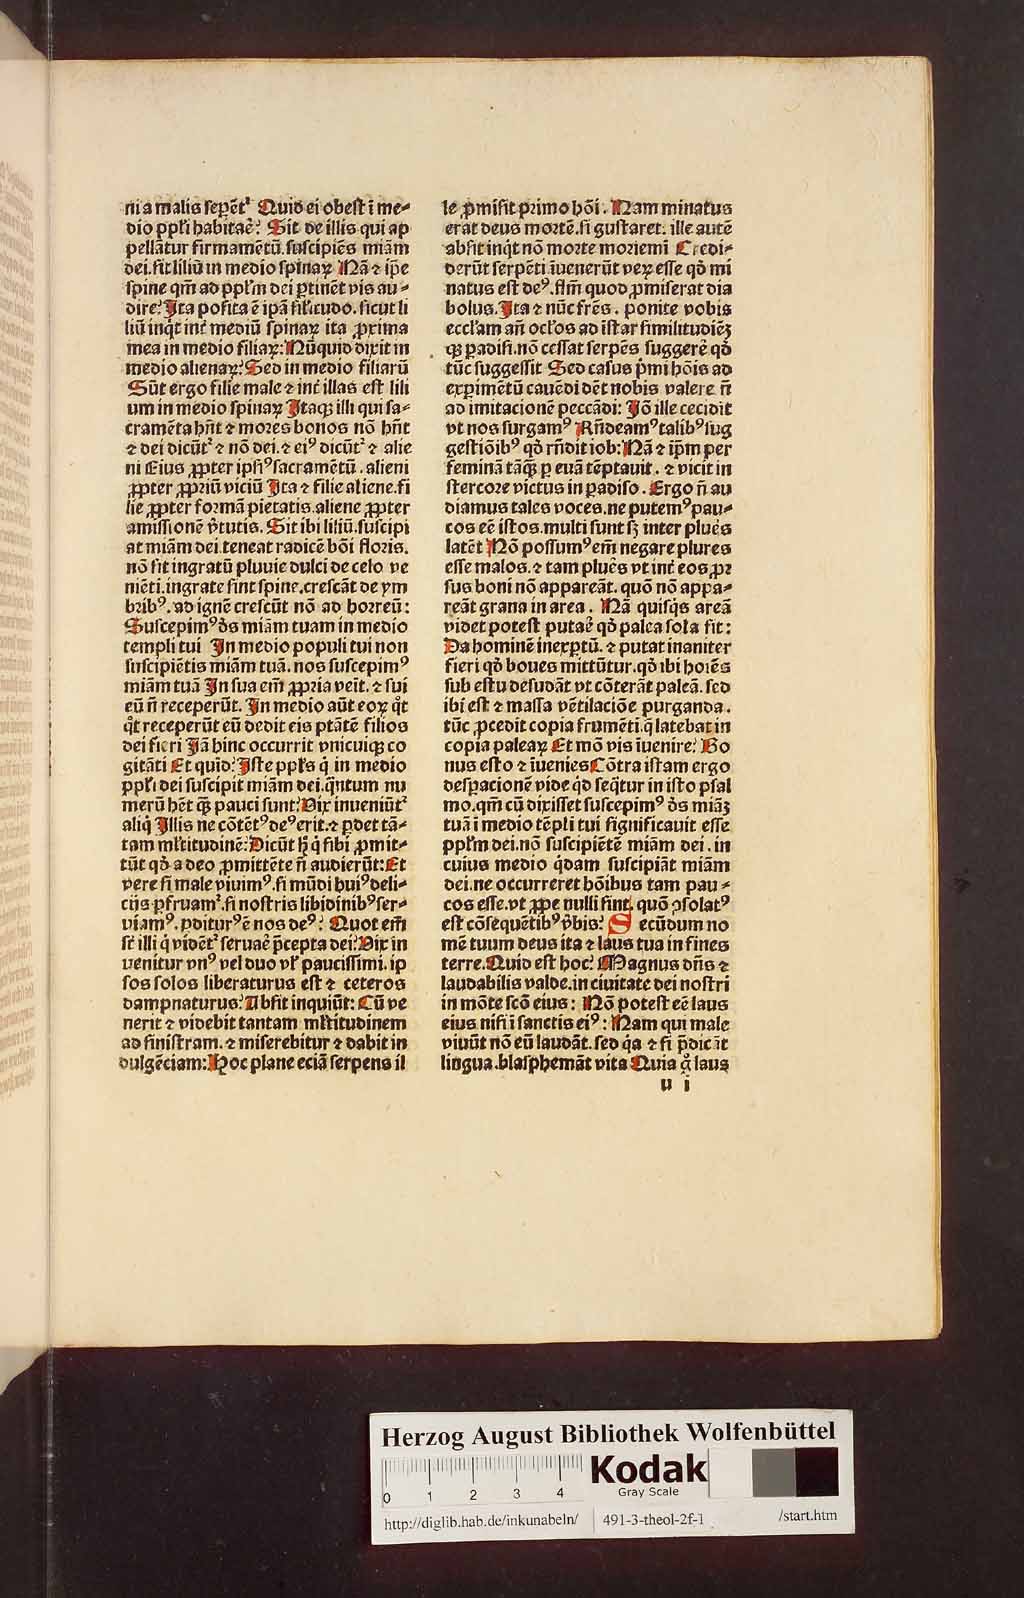 ni a malis sepēt᷑ Quid ei obest ī me⸗
dio ppłi habitaē? Sit de illis qui ap
pellātur firmamētū. suscipiēs miām
dei. sit liliū in medio spinaꝝ Nā ⁊ ip̄e
spine qm̄ ad ppłm dei ꝑtinēt vis au⸗
dire? Ita posita ē ipā siłitudo. sicut li
liū inq̇t int̄ mediū spinaꝝ ita ꝓxima
mea in medio filiaꝝ: Nūquid dixit in
medio alienaꝝ? Sed in medio filiarū
Sūt ergo filie male ⁊ int̄ illas est lili
um in medio spinaꝝ Itaqꝫ illi qui sa⸗
cramēta hn̄t ⁊ mores bonos nō hn̄t
⁊ dei dicūt᷑ ⁊ nō dei. ⁊ eiꝰ dicūt᷑ ⁊ alie
ni Eius ꝓpter ipsiꝰ sacramētū. alieni
ꝓpter ꝓpriū viciū Ita ⁊ filie aliene. fi
lie ꝓpter formā pietatis. aliene ꝓpter
amissionē v̄tutis. Sit ibi liliū. suscipi
at miām dei. teneat radicē bōi floris.
nō sit ingratū pluuie dulci de celo ve
niēti. ingrate sint spine. crescāt de ym
bribꝰ. ad ignē crescūt nō ad horreū:
Suscepimꝰ d̄s miām tuam in medio
templi tui In medio populi tui non
suscipiētis miām tuā. nos suscepimꝰ
miām tuā In sua em̄ ꝓpria veīt. ⁊ sui
eū n̄ receperūt. In medio aūt eoꝝ q̇t
q̇t receperūt eū dedit eis ptātē filios
dei fieri Iā hinc occurrit vnicuiqꝫ co
gitāti Et quid? Iste ppłs q̇ in medio
ppłi dei suscipit miām dei. q̄ntum nu
merū hēt qꝫ pauci sunt? Vix inueniūt᷑
aliq̇ Illis ne cōtētꝰ deꝰ erit. ⁊ ꝑdet tā⸗
tam młtitudinē? Dicūt h̄ q̇ sibi ꝓmit⸗
tūt qd̄ a deo ꝓmittēte n̄ audierūt: Et
vere si male viuimꝰ. si mūdi huiꝰ deli⸗
cijs ꝑfruam᷑. si nostris libidinibꝰ ser⸗
uiamꝰ. ꝑditurꝰ ē nos deꝰ? Quot em̄
st̄ illi q̇ vidēt᷑ seruaē p̄cepta dei? Vix in
uenitur vnꝰ vel duo vł paucissimi. ip
sos solos liberaturus est ⁊ ceteros
dampnaturus? Absit inquiūt: Cū ve
nerit ⁊ videbit tantam młtitudinem
ad sinistram. ⁊ miserebitur ⁊ dabit in
dulgēciam: Hoc plane eciā serpens il
le ꝓmisit primo hōi. Nam minatus
erat deus mortē. si gustaret. ille autē
absit inq̇t nō morte moriemī Credi⸗
derūt serpēti īuenerūt veꝝ esse qd̄ mi
natus est deꝰ. flm̄ quod ꝓmiserat dia
bolus. Ita ⁊ nūc frēs. ponite vobis
eccłam an̄ ocłos ad istar similitudiēꝫ
qꝫ ꝑadisi. nō cessat serpēs suggerē qd̄
tūc suggessit Sed casus p̄mi hōis ad
experimētū cauēdi dēt nobis valere n̄
ad imitacionē peccādi: Iō ille cecidit
vt nos surgamꝰ Rn̄deamꝰ talibꝰ sug
gestiōibꝰ qd̄ rn̄dit iob: Nā ⁊ ip̄m per
feminā tāqꝫ ꝑ euā tēptauit. ⁊ vicit in
stercore victus in ꝑadiso. Ergo n̄ au
diamus tales voces. ne putemꝰ pau⸗
cos eē istos. multi sunt sꝫ inter plues
latēt Nō possumꝰ em̄ negare plures
esse malos. ⁊ tam plues vt int̄ eos pr
sus boni nō appareāt. quō nō appa⸗
reāt grana in area. Nā quisq̇s areā
videt potest putaē qd̄ palea sola sit:
Da hominē inexꝑtū. ⁊ putat inaniter
fieri qd̄ boues mittūtur. qd̄ ibi hoiēs
sub estu desudāt vt cōterāt paleā. sed
ibi est ⁊ massa vētilaciōe purganda.
tūc ꝓcedit copia frumēti. q̄ latebat in
copia paleaꝝ Et mō vis īuenire? Bo
nus esto ⁊ īuenies Cōtra istam ergo
desꝑacionē vide qd̄ seq̄tur in isto psal
mo. qm̄ cū dixisset suscepimꝰ d̄s miāꝫ
tuā ī medio tēpli tui significauit esse
ppłm dei. nō suscipiētē miām dei. in
cuius medio q̇dam suscipiāt miām
dei. ne occurreret hōibus tam pau⸗
cos esse. vt ꝓpe nulli sint. quō ꝯsolatꝰ
est cōsequētibꝰ v̄bis? Secūdum no
mē tuum deus ita ⁊ laus tua in fines
terre. Quid est hoc? Magnus dn̄s ⁊
laudabilis valde. in ciuitate dei nostri
in mōte scō eius: Nō potest eē laus
eius nisi ī sanctis eiꝰ: Nam qui male
viuūt nō eū laudāt. sed q̇a ⁊ si p̄dicāt
lingua. blasphemāt vita Quia g̊ laus
u i
Herzog August Bibliothek Wolfenbüttel
0 1 2 3 4
Kodak
Gray Scale
http://diglib.hab.de/inkunabeln/ 491-3-theol-2f-1 /start.htm